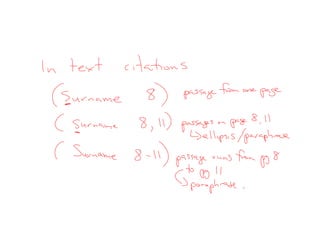 In text citations
(Surname 8) passage from one page
(Surname 8, 11) passages on page 8, 11
↳ellipsis/paraphrase
(Surname 8-11) passage runs from pg 8
to pg 11
↳paraphrase.